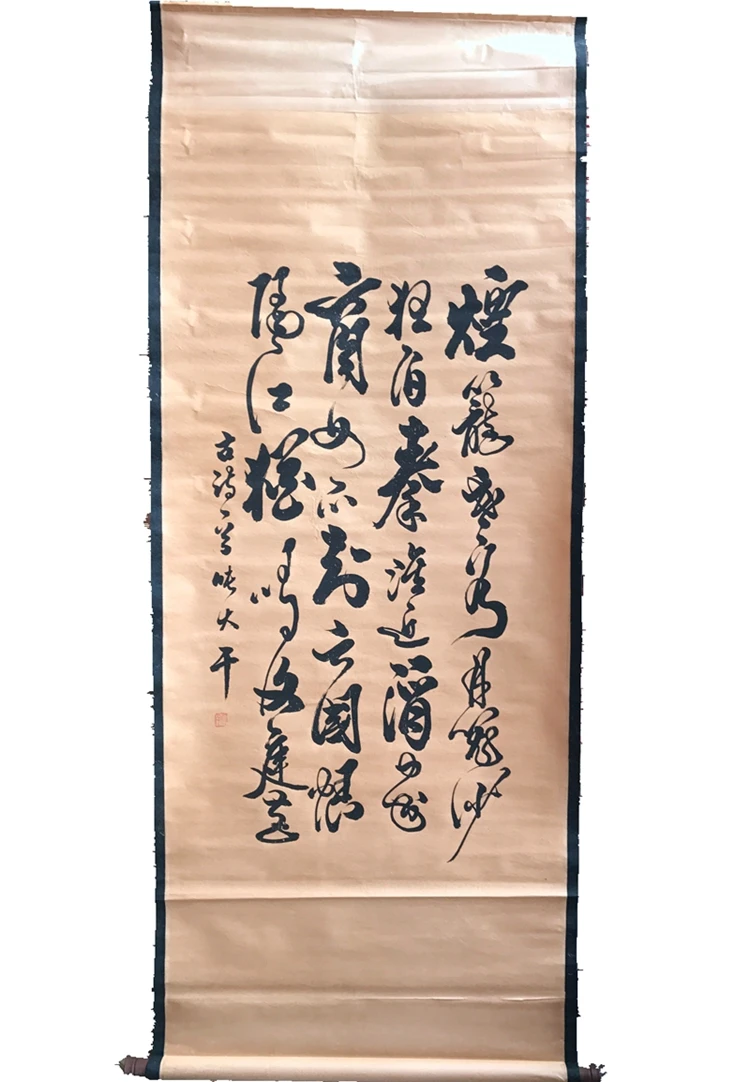 煙籠寒水月籠沙
夜泊秦淮近酒家
商女不知亡國恨
隔江猶唱後庭花
古詩一首